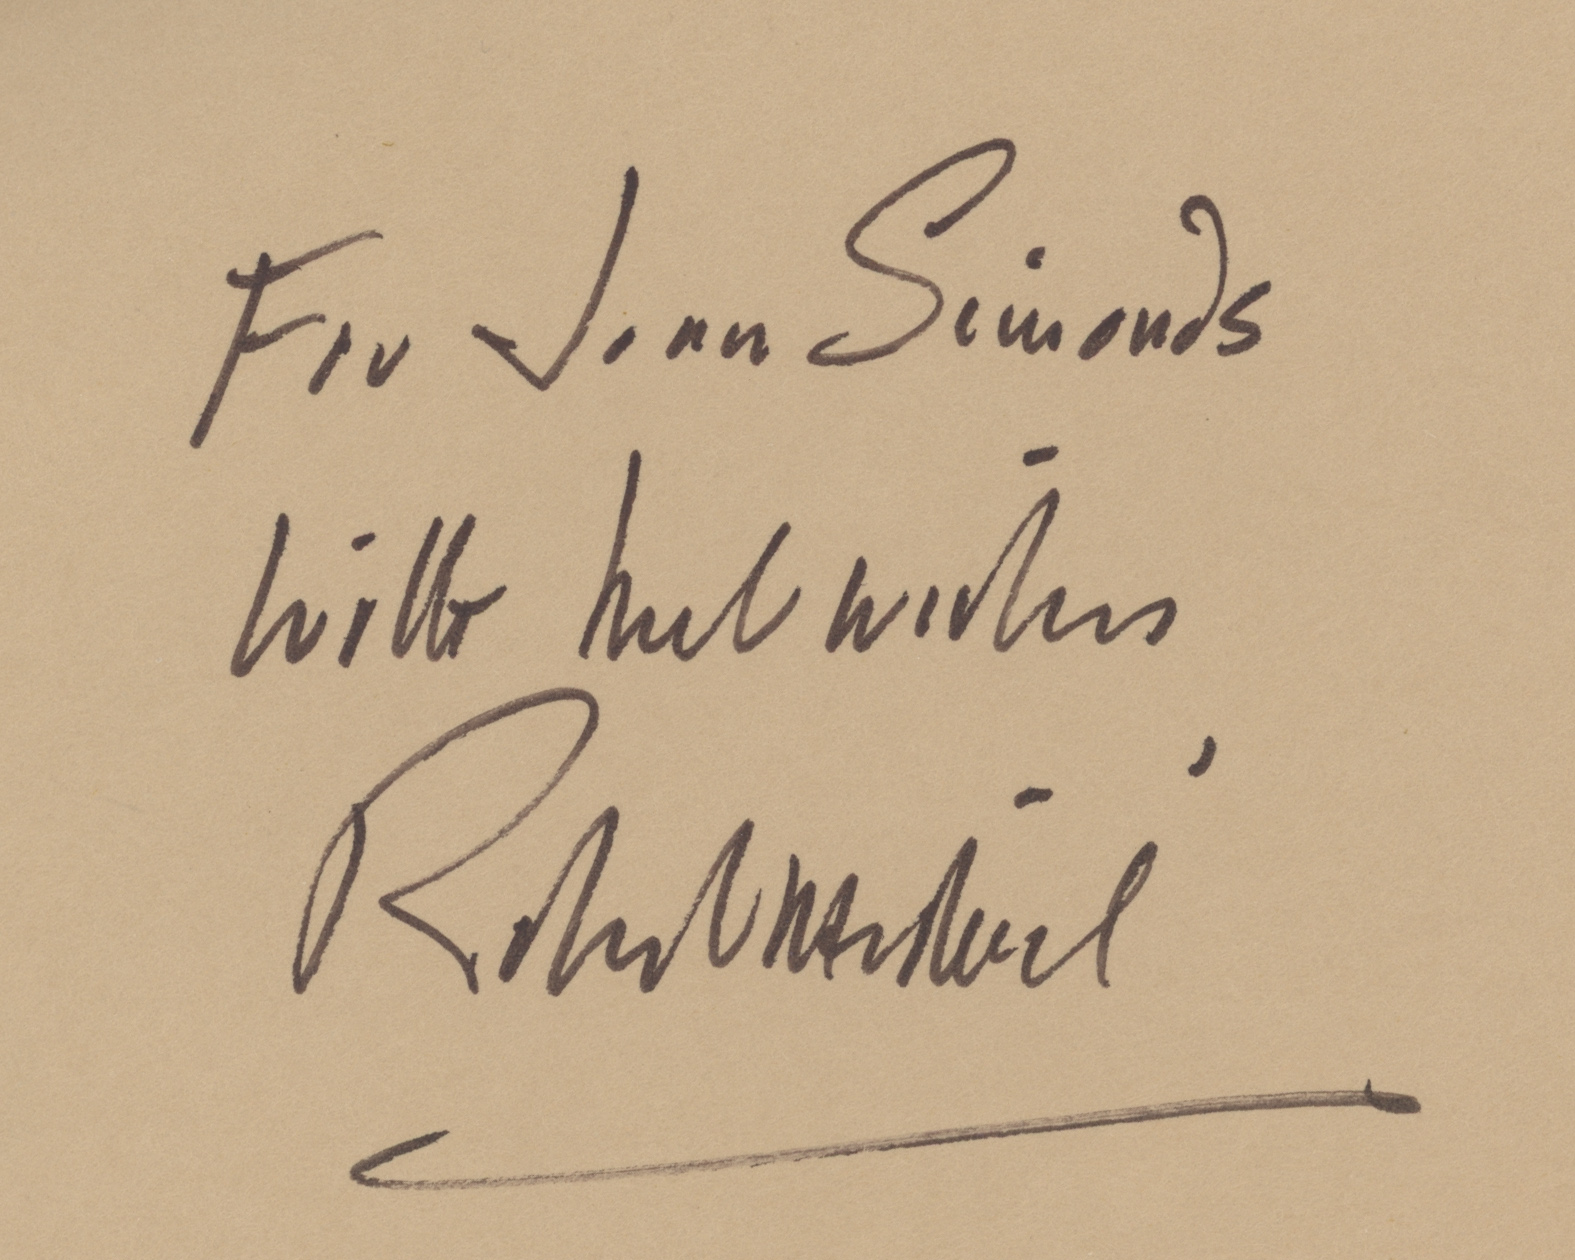 For Joan Simonds
with best wishes
Robert